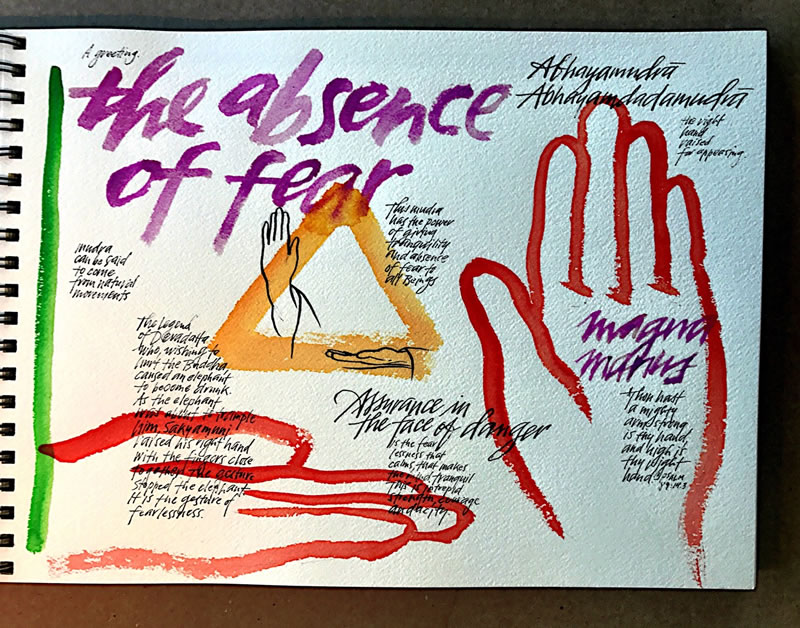 A greeting.
the absence
of fear
Abhayamudrā
Abhayamdadamudrā
the right
hand
raised
for appeasing.
mudra
can be said
to come
from natural
movements
This mudra
has the power
of giving
tranquility
and absence
of fear to
all Beings
The legend
of Devadatta
who, wishing to
hurt the Buddha,
caused an elephant
to become drunk.
As the elephant
was about to trample
him, Sakyamuni
raised his right hand
with the fingers close
together. The gesture
stopped the elephant.
It is the gesture of
fearlessness.
Assurance in
the face of danger
is the fear
lessness that
calms, that makes
the mind tranquil
This is intrepid
strength, courage
audacity.
magna
manus
thou hast
a mighty
arm, strong
is thy hand,
and high is
thy right
hand